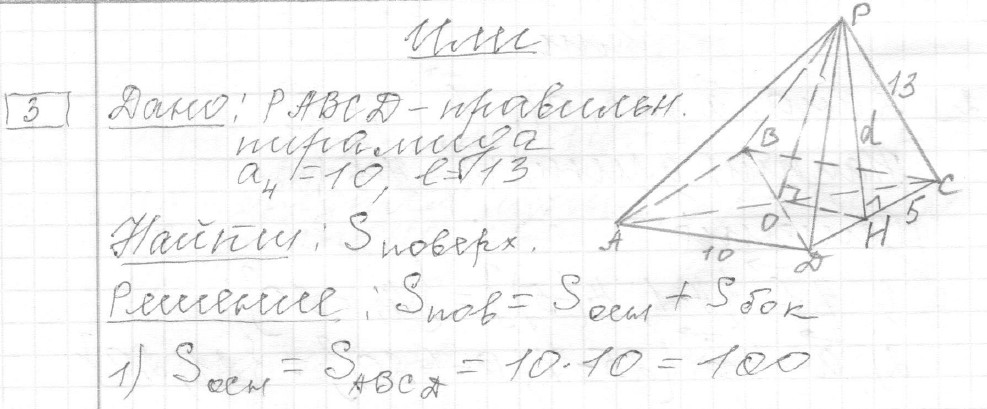 Или
3
Дано: PABCD - правильн.
пирамида
a₄ = 10, l = 13
Найти: Sповерх.
Решение: Sпов = Sосн + Sбок
1) Sосн = SABCD = 10·10 = 100
P
13
B
d
C
5
O
H
A
10
D